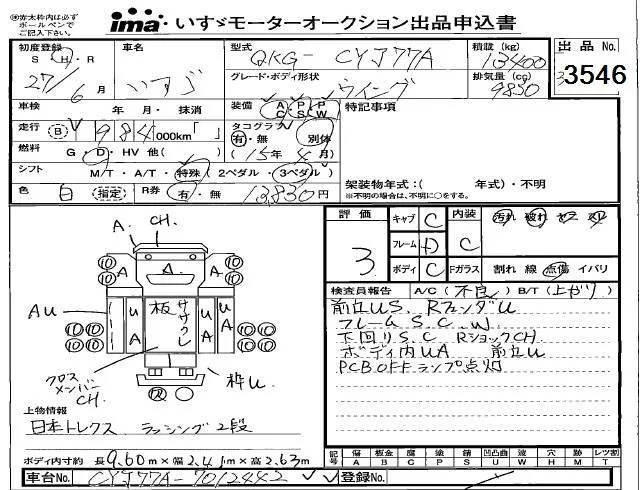 ※赤太枠内は必ず
ボールペンで
ご記入下さい。
ima いすゞモーターオークション出品申込書
初度登録 車名 型式 QKG-CYJ77A 積載(kg) 13400 出品No.
S・H・R
27/6月 いすゞ グレード・ボディ形状 ウイング 排気量(cc) 9830 3546
車検 年・月・抹消 装備 AC PS PW 特記事項
走行 B 984,000km「 」 タコグラフ 有・無 別体
燃料 G・D・HV 他( ) (15年4月)
シフト M/T・A/T・特殊 (2ペダル・3ペダル) 架装物年式:( 年式)・不明
色 白 (指定) R券 有・無 13,830円 ※不明の場合は、不明に○をする。
評価 キャブ C 内装 汚れ 破れ
3 フレーム D C
ボディ C Fガラス 割れ 線 点傷 イバリ
検査員報告 A/C(不良) B/T(上がり)
A. CH.
前立US. RフェンダU
フレームS.C.W
下回りS.C RショックCH.
ボディ内UA 前立U
PCB OFFランプ点灯
⑩ ⑩ A A A ⑩ ⑩
AU
U A 板 ササクレ U A
クロスメンバーCH.
枠U
上物情報
日本トレクス ラッシング2段
ボディ内寸約 長9.60m×幅2.41m×高2.63m
記号 傷 板金 腐 塗 錆 凹凸曲 波 穴 跡 レツ割
A B C P S U W H M T
車台No. CYJ77A-7012442 登録No.